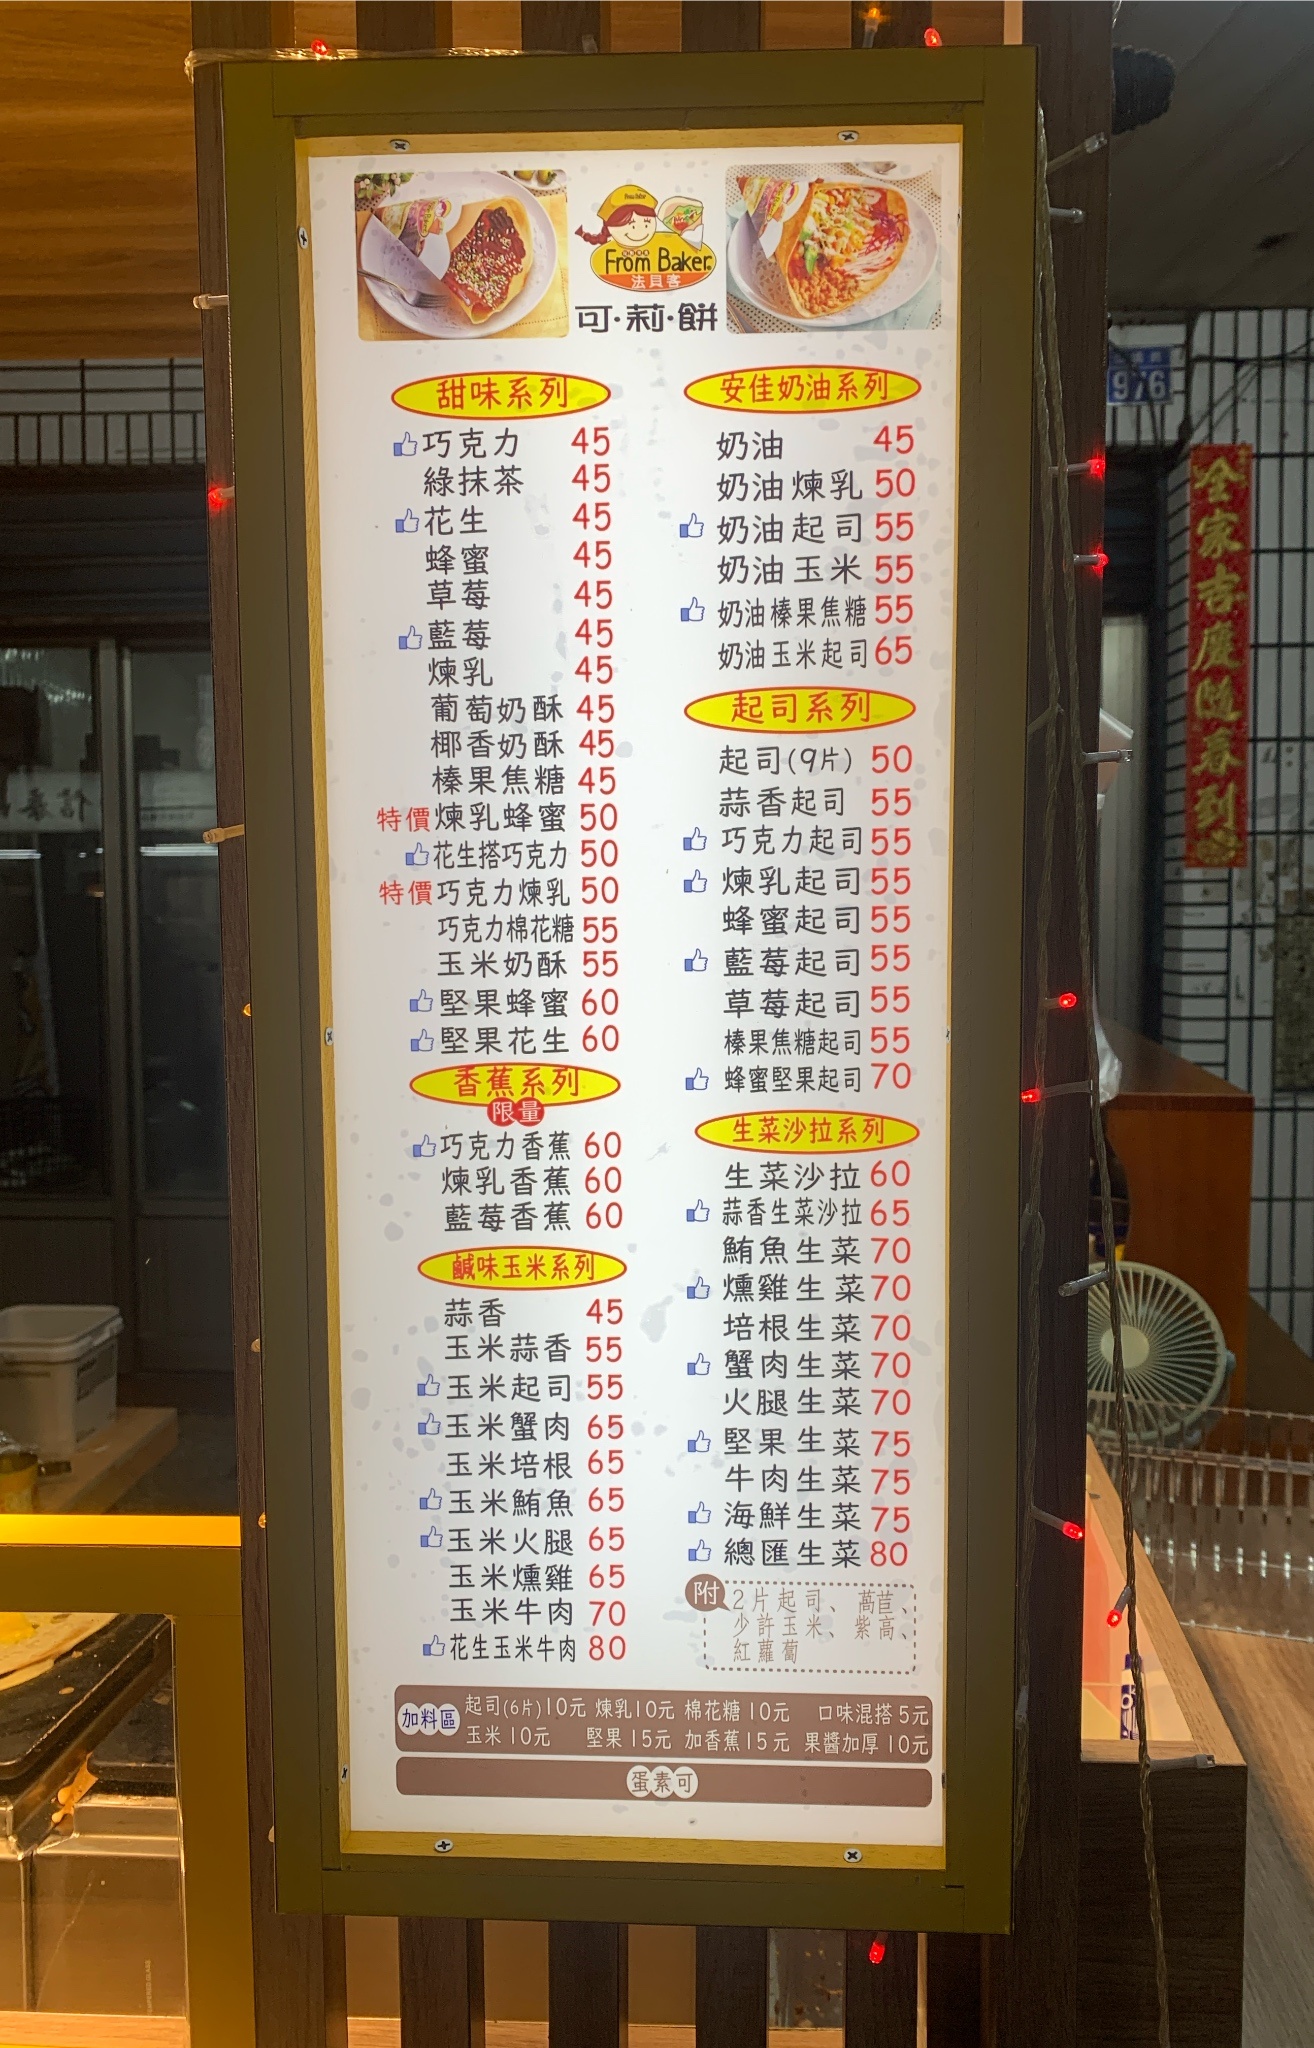 From Baker
法貝客
可·莉·餅
甜味系列
巧克力 45
綠抹茶 45
花生 45
蜂蜜 45
草莓 45
藍莓 45
煉乳 45
葡萄奶酥 45
椰香奶酥 45
榛果焦糖 45
特價 煉乳蜂蜜 50
花生搭巧克力 50
特價 巧克力煉乳 50
巧克力棉花糖 55
玉米奶酥 55
堅果蜂蜜 60
堅果花生 60
香蕉系列
限量
巧克力香蕉 60
煉乳香蕉 60
藍莓香蕉 60
鹹味玉米系列
蒜香 45
玉米蒜香 55
玉米起司 55
玉米蟹肉 65
玉米培根 65
玉米鮪魚 65
玉米火腿 65
玉米燻雞 65
玉米牛肉 70
花生玉米牛肉 80
安佳奶油系列
奶油 45
奶油煉乳 50
奶油起司 55
奶油玉米 55
奶油榛果焦糖 55
奶油玉米起司 65
起司系列
起司(9片) 50
蒜香起司 55
巧克力起司 55
煉乳起司 55
蜂蜜起司 55
藍莓起司 55
草莓起司 55
榛果焦糖起司 55
蜂蜜堅果起司 70
生菜沙拉系列
生菜沙拉 60
蒜香生菜沙拉 65
鮪魚生菜 70
燻雞生菜 70
培根生菜 70
蟹肉生菜 70
火腿生菜 70
堅果生菜 75
牛肉生菜 75
海鮮生菜 75
總匯生菜 80
附
2片起司、萵苣、
少許玉米、紫高、
紅蘿蔔
加料區
起司(6片)10元 煉乳10元 棉花糖 10元 口味混搭 5元
玉米 10元 堅果 15元 加香蕉15元 果醬加厚 10元
蛋素可
976
全家吉慶隨春到